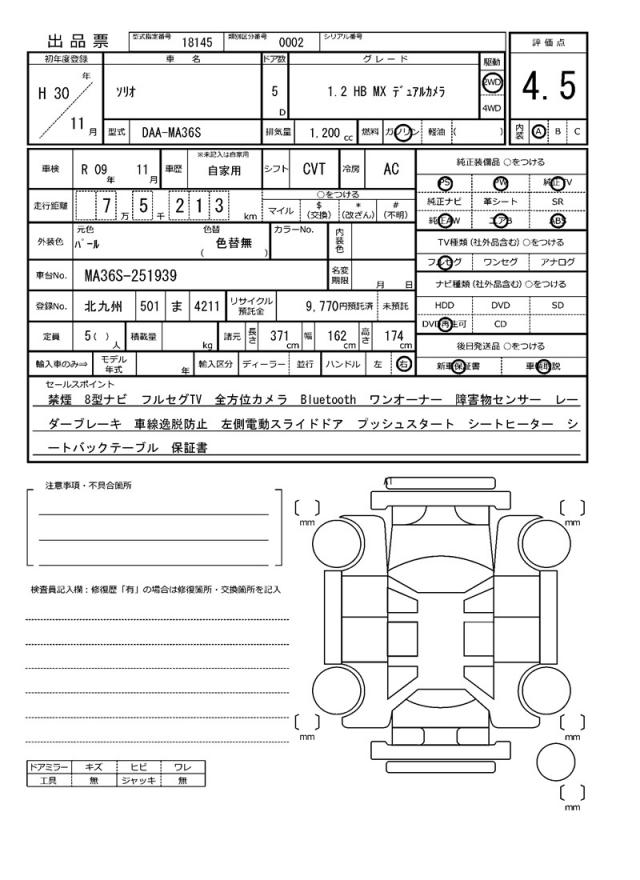 出品票 型式指定番号 18145 類別区分番号 0002 シリアル番号
評価点
4.5
内装 A B C
初年度登録 車名 ドア数 グレード 駆動
H 30 年 11 月 ソリオ 5 D 1.2 HB MX デュアルカメラ 2WD 4WD
型式 DAA-MA36S 排気量 1.200 cc 燃料 ガソリン 軽油 ( )
車検 R 09 年 11 月 車歴 ※未記入は自家用 自家用 シフト CVT 冷房 AC
走行距離 7 万 5 千 2 1 3 km ○をつける マイル $ (交換) * (改ざん) # (不明)
外装色 元色 パール 色替 ( 色替無 ) カラーNo. 内装色
車台No. MA36S-251939 名変期限 月 日
登録No. 北九州 501 ま 4211 リサイクル預託金 9,770円預託済 未預託
定員 5( ) 人 積載量 kg 諸元 長さ 371 cm 幅 162 cm 高さ 174 cm
輸入車のみ⇒ モデル年式 年 輸入区分 ディーラー 並行 ハンドル 左 右
純正装備品 ○をつける
PS PW 純正TV
純正ナビ 革シート SR
純正AW エアB ABS
TV種類 (社外品含む) ○をつける
フルセグ ワンセグ アナログ
ナビ種類 (社外品含む) ○をつける
HDD DVD SD
DVD再生可 CD
後日発送品 ○をつける
新車保証書 車輌取説
セールスポイント
禁煙 8型ナビ フルセグTV 全方位カメラ Bluetooth ワンオーナー 障害物センサー レー
ダーブレーキ 車線逸脱防止 左側電動スライドドア プッシュスタート シートヒーター シ
ートバックテーブル 保証書
注意事項・不具合箇所
A1
mm
mm
検査員記入欄：修復歴「有」の場合は修復箇所・交換箇所を記入
mm
mm
ドアミラー キズ ヒビ ワレ
工具 無 ジャッキ 無
mm